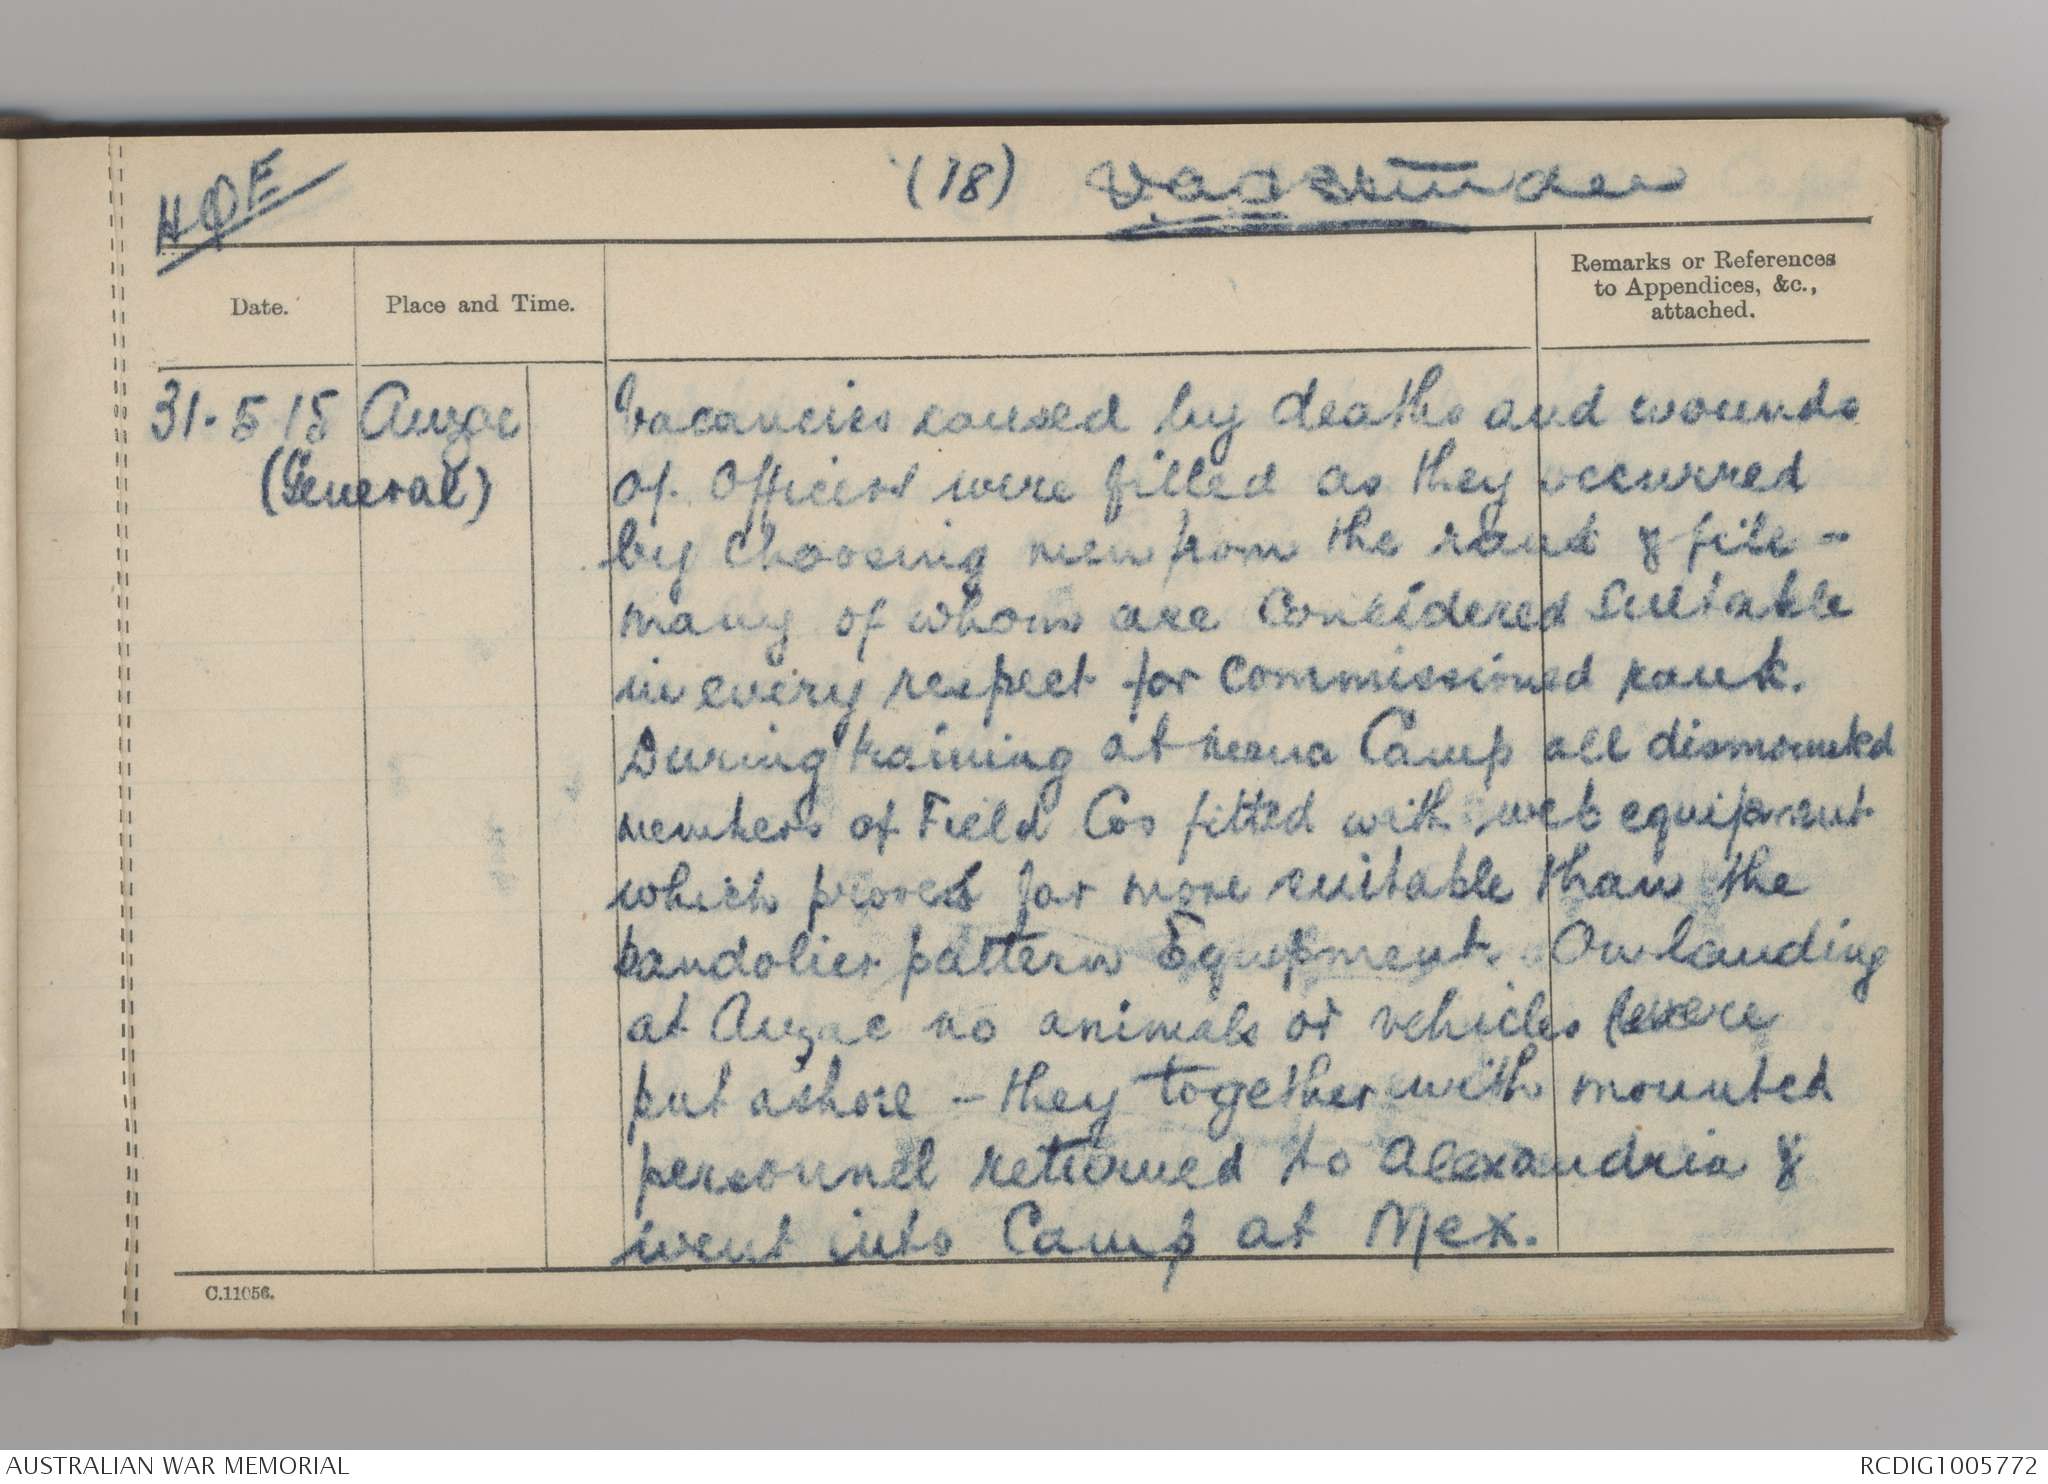 HQE
(18)
Date.
Place and Time.
Remarks or References
to Appendices, &c.,
attached.
31. 5 15 Anzac
(General)
Vacancies caused by deaths and wounds
of Officers were filled as they occurred
by choosing men from the rank & file -
many of whom are considered suitable
in every respect for commissioned rank.
During training at Mena Camp all dismounted
members of Field Cos fitted with web equipment
which proved far more suitable than the
bandolier pattern Equipment. On landing
at Anzac no animals or vehicles were
put ashore - they together with mounted
personnel returned to Alexandria &
went into Camp at Mex.
C.11056.
AUSTRALIAN WAR MEMORIAL
RCDIG1005772